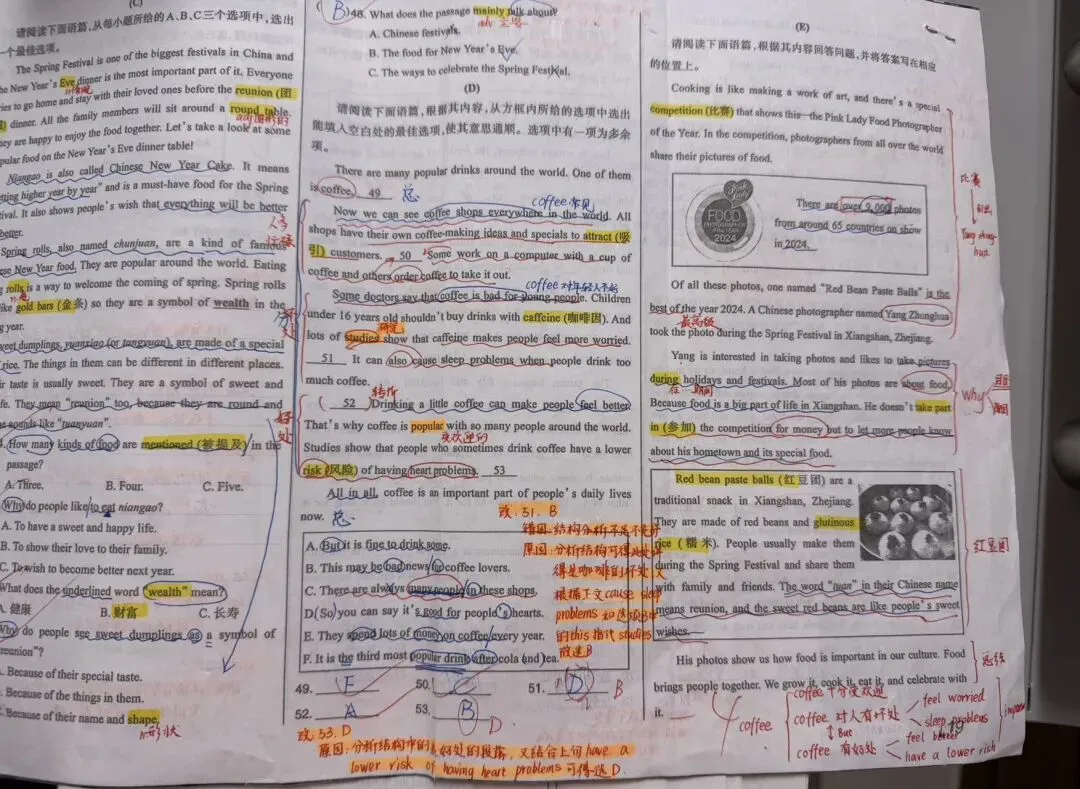 (C)
请阅读下面语篇,从每小题所给的A、B、C三个选项中,选出
一个最佳选项。
The Spring Festival is one of the biggest festivals in China and
the New Year's Eve dinner is the most important part of it. Everyone
tries to go home and stay with their loved ones before the reunion (团
dinner. All the family members will sit around a round table.
They are happy to enjoy the food together. Let's take a look at some
popular food on the New Year's Eve dinner table!
Niangao is also called Chinese New Year Cake. It means
"getting higher year by year" and is a must-have food for the Spring
Festival. It also shows people's wish that everything will be better
Spring rolls, also named chunjuan, are a kind of famous
Chinese New Year food. They are popular around the world. Eating
rolls is a way to welcome the coming of spring. Spring rolls
like gold bars (金条) so they are a symbol of wealth in the
coming year.
Sweet dumplings, yuanxiao (or tangyuan), are made of a special
rice. The things in them can be different in different places.
Their taste is usually sweet. They are a symbol of sweet and
life. They mean "reunion" too, because they are round and
the sounds like "tuanyuan".
How many kinds of food are mentioned (被提及) in the
passage?
A. Three. B. Four. C. Five.
Why do people like to eat niangao?
A. To have a sweet and happy life.
B. To show their love to their family.
C. To wish to become better next year.
What does the underlined word "wealth" mean?
A. 健康 B. 财富 C. 长寿
Why do people see sweet dumplings as a symbol of
"reunion"?
A. Because of their special taste.
B. Because of the things in them.
C. Because of their name and shape.
n.形状
(B)48. What does the passage mainly talk about?
adv 主要
A. Chinese festivals.
B. The food for New Year's Eve.
C. The ways to celebrate the Spring Festival.
(D)
请阅读下面语篇,根据其内容,从方框内所给的选项中选出
能填入空白处的最佳选项,使其意思通顺。选项中有一项为多余
项。
There are many popular drinks around the world. One of them
is coffee. 49 总
coffee常见
Now we can see coffee shops everywhere in the world. All
shops have their own coffee-making ideas and specials to attract (吸
引) customers. 50 Some work on a computer with a cup of
coffee and others order coffee to take it out.
coffee对年轻人不好
Some doctors say that coffee is bad for young people. Children
under 16 years old shouldn't buy drinks with caffeine (咖啡因). And
研究
lots of studies show that caffeine makes people feel more worried.
51 It can also cause sleep problems when people drink too
much coffee.
转折
( 52 )Drinking a little coffee can make people feel better.
That's why coffee is popular with so many people around the world.
受欢迎的
Studies show that people who sometimes drink coffee have a lower
risk (风险) of having heart problems. 53
All in all, coffee is an important part of people's daily lives
now. 总
改.51.B
A. But it is fine to drink some.
B. This may be bad news for coffee lovers.
C. There are always many people in these shops.
D. So you can say it's good for people's hearts.
E. They spend lots of money on coffee every year.
F. It is the third most popular drink after cola and tea.
错因:结构分析不是不好
原因:分析结构可得此处
得是咖啡的坏处,又
根据下文cause sleep
problems和选项B中
的this指代studies
故选B
49. F 50. C 51. D B
52. A 53. B D
改.53.D
原因:分析结构中的好处的段落,又结合上句have a
lower risk of having heart problems可得选D.
(E)
请阅读下面语篇,根据其内容回答问题,并将答案写在相应
的位置上。
Cooking is like making a work of art, and there's a special
competition (比赛) that shows this—the Pink Lady Food Photographer
of the Year. In the competition, photographers from all over the world
share their pictures of food.
Pink Lady
FOOD
PHOTOGRAPHER
OF THE YEAR
2024
There are over 9,000 photos
from around 65 countries on show
in 2024.
比赛
引出
Yang zhong
hua
Of all these photos, one named "Red Bean Paste Balls" is the
best of the year 2024. A Chinese photographer named Yang Zhonghua
最高级
took the photo during the Spring Festival in Xiangshan, Zhejiang.
Yang is interested in taking photos and likes to take pictures
during holidays and festivals. Most of his photos are about food.
在…期间
Because food is a big part of life in Xiangshan. He doesn't take part
in (参加) the competition for money but to let more people know
about his hometown and its special food.
why
原因
Red bean paste balls (红豆团) are a
traditional snack in Xiangshan, Zhejiang.
They are made of red beans and glutinous
rice (糯米). People usually make them
during the Spring Festival and share them
with family and friends. The word "tuan" in their Chinese name
means reunion, and the sweet red beans are like people's sweet
wishes.
红豆团
His photos show us how food is important in our culture. Food
brings people together. We grow it, cook it, eat it, and celebrate with
it.
总结
coffee
coffee 十分受欢迎
coffee 对人有坏处
feel worried
sleep problems
But
coffee 有好处
feel better
have a lower rish